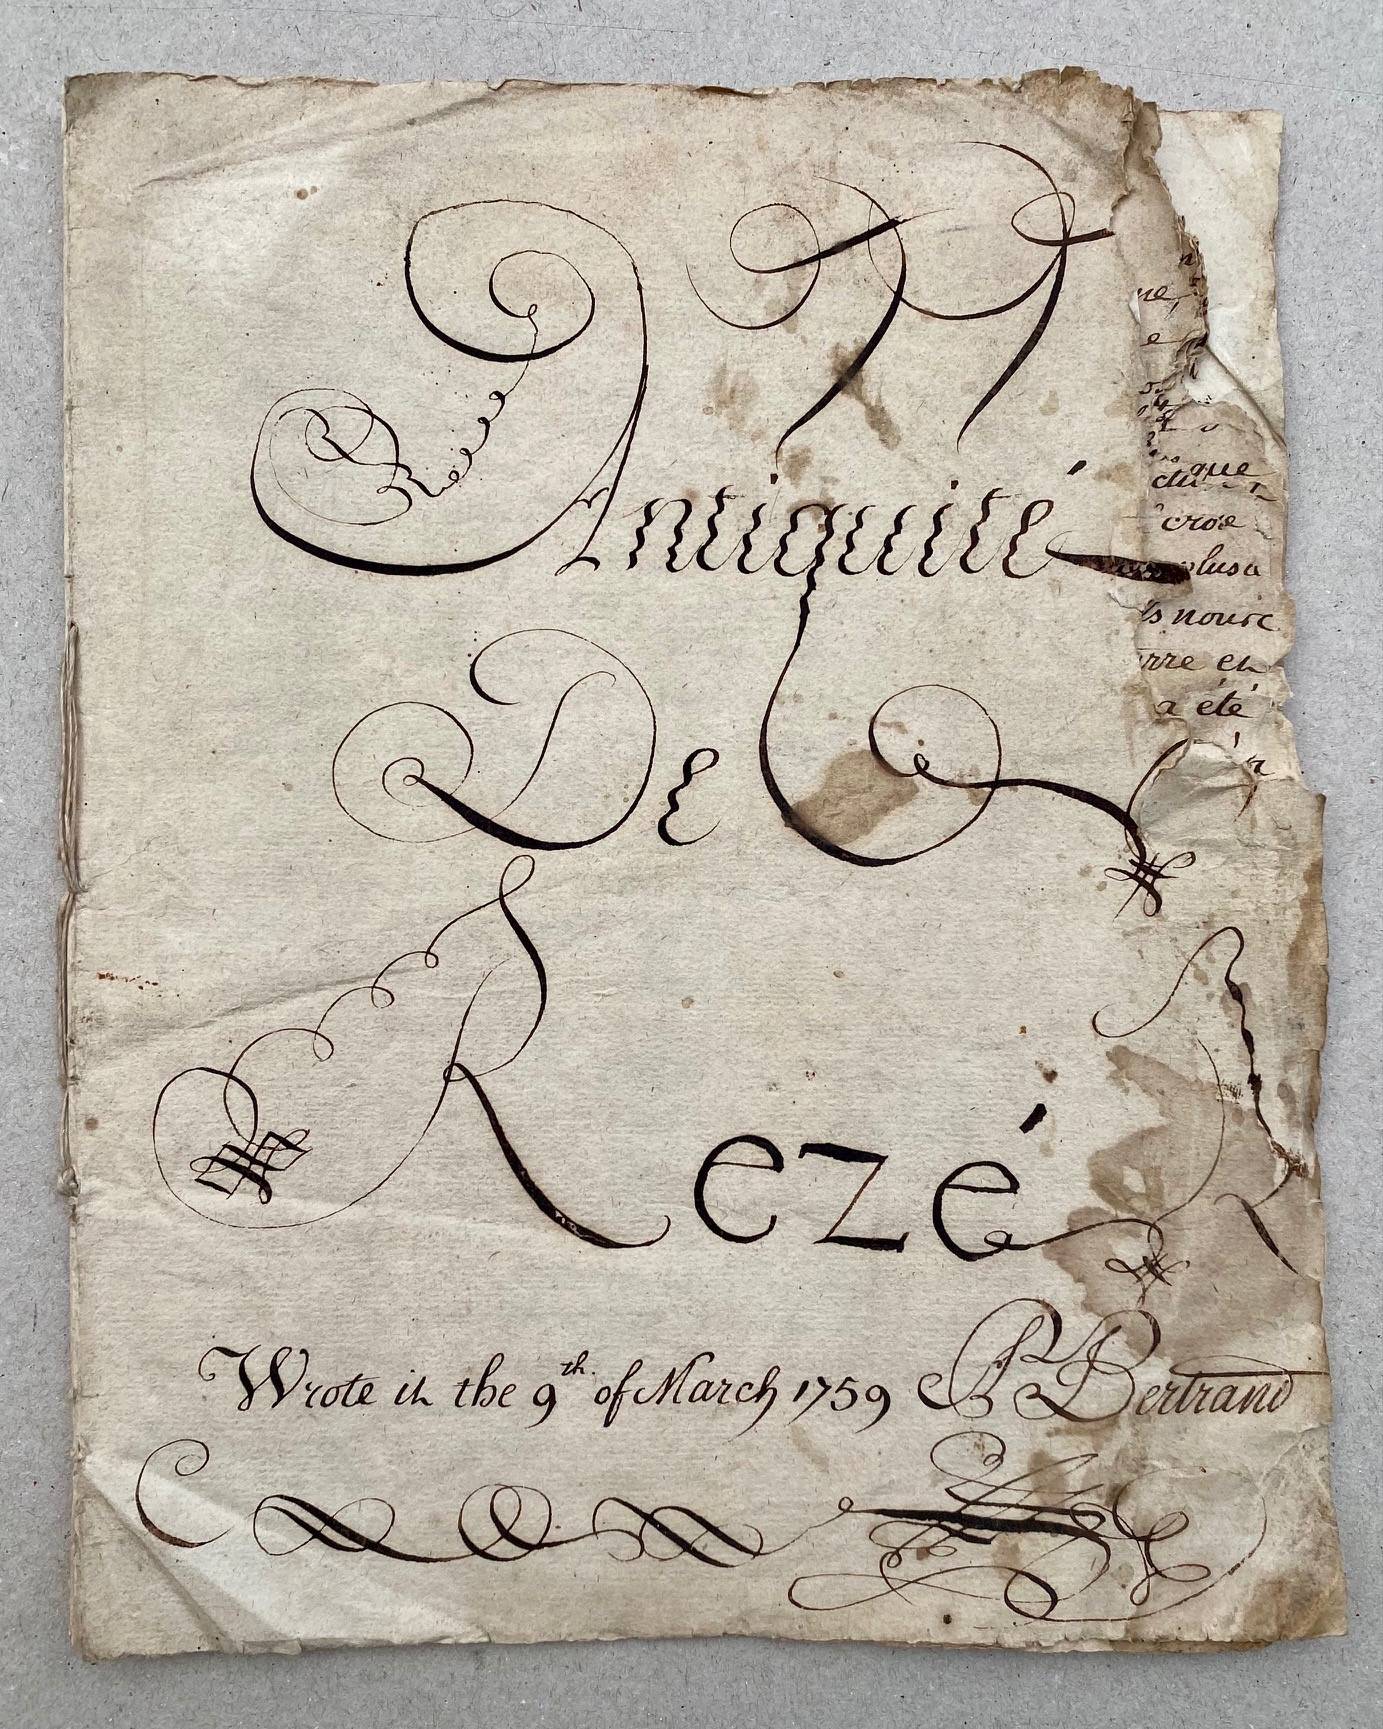 Antiquité
De
Rezé
Wrote in the 9th. of March 1759 P Bertrand
ne,
e
que
croe
plusa
nourc
rre en
a été